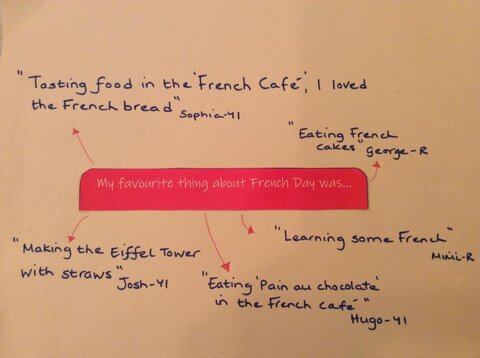 "Tasting food in the 'French Café', I loved
the French bread" Sophia-Y1
"Eating French
cakes" George-R
My favourite thing about French Day was...
"Making the Eiffel Tower
with straws" Josh-Y1
"Learning some French"
Mimi-R
"Eating 'Pain au chocolate'
in the French café"
Hugo-Y1